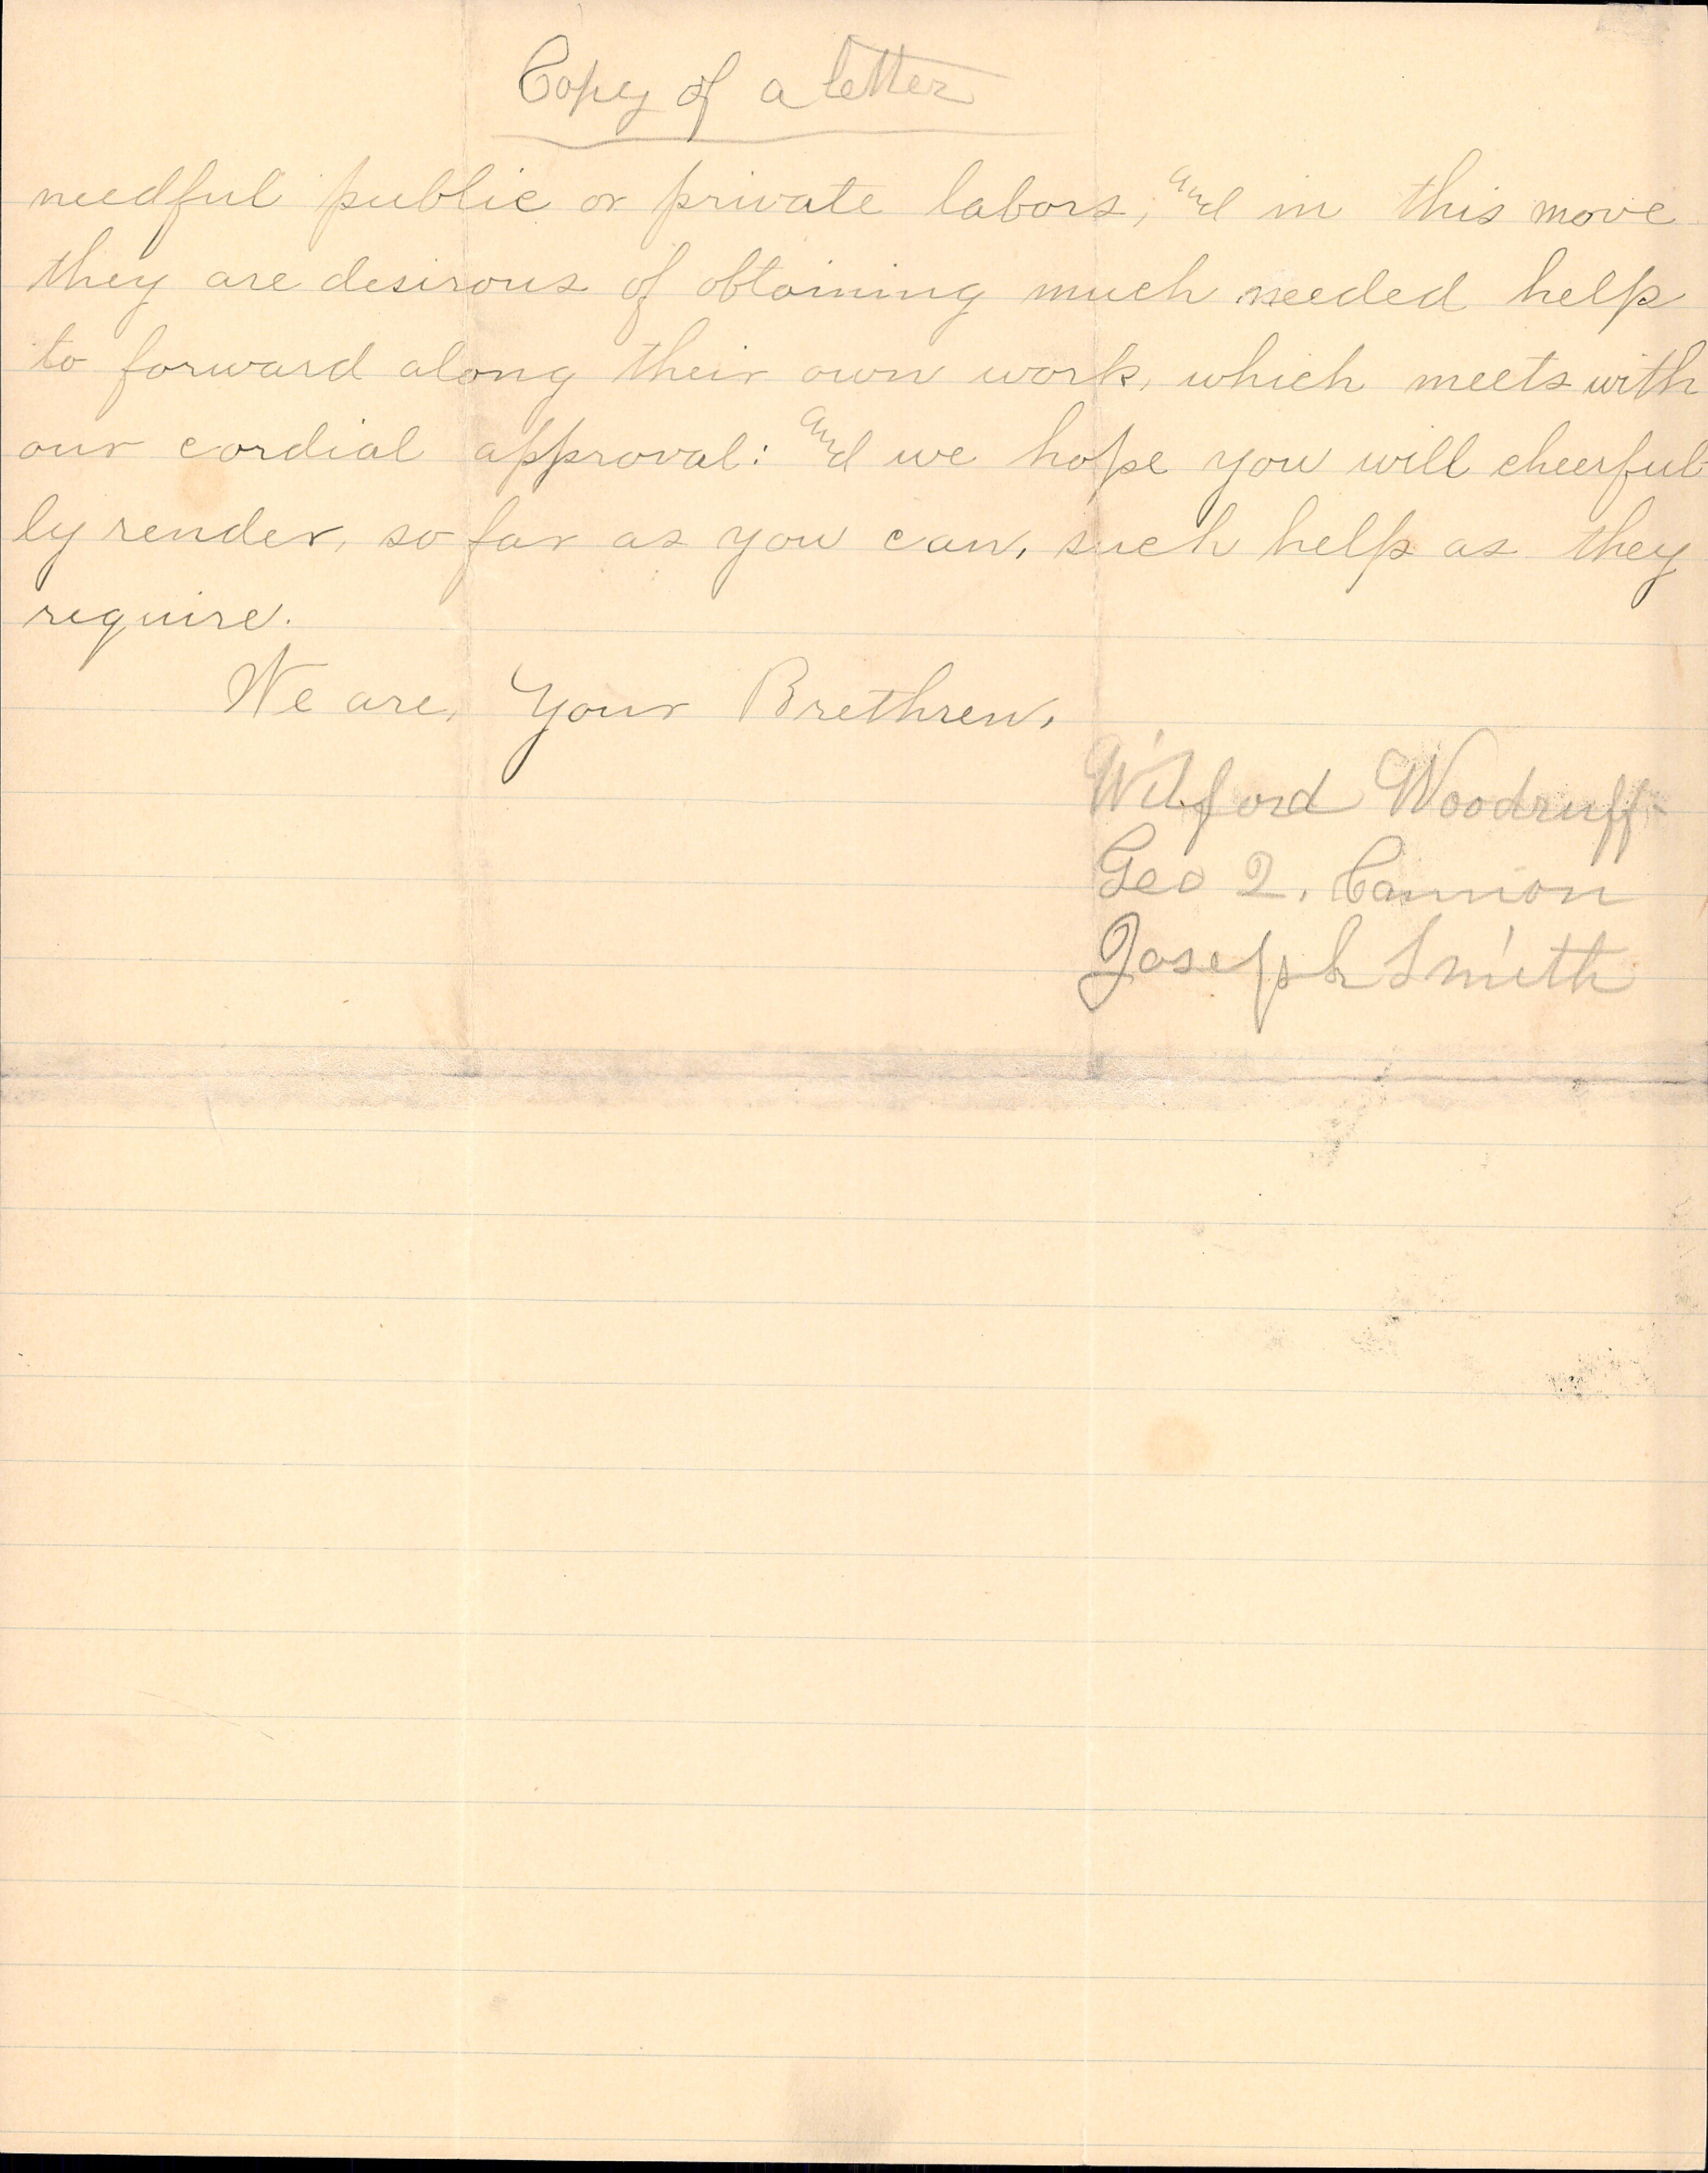 Copy of a letter
needful public or private labors, and in this move
they are desirous of obtaining much needed help
to forward along their own work, which meets with
our cordial approval: and we hope you will cheerful-
ly render, so far as you can, such help as they
require.
We are, Your Brethren,
Wilford Woodruff
Geo Q. Cannon
Joseph Smith